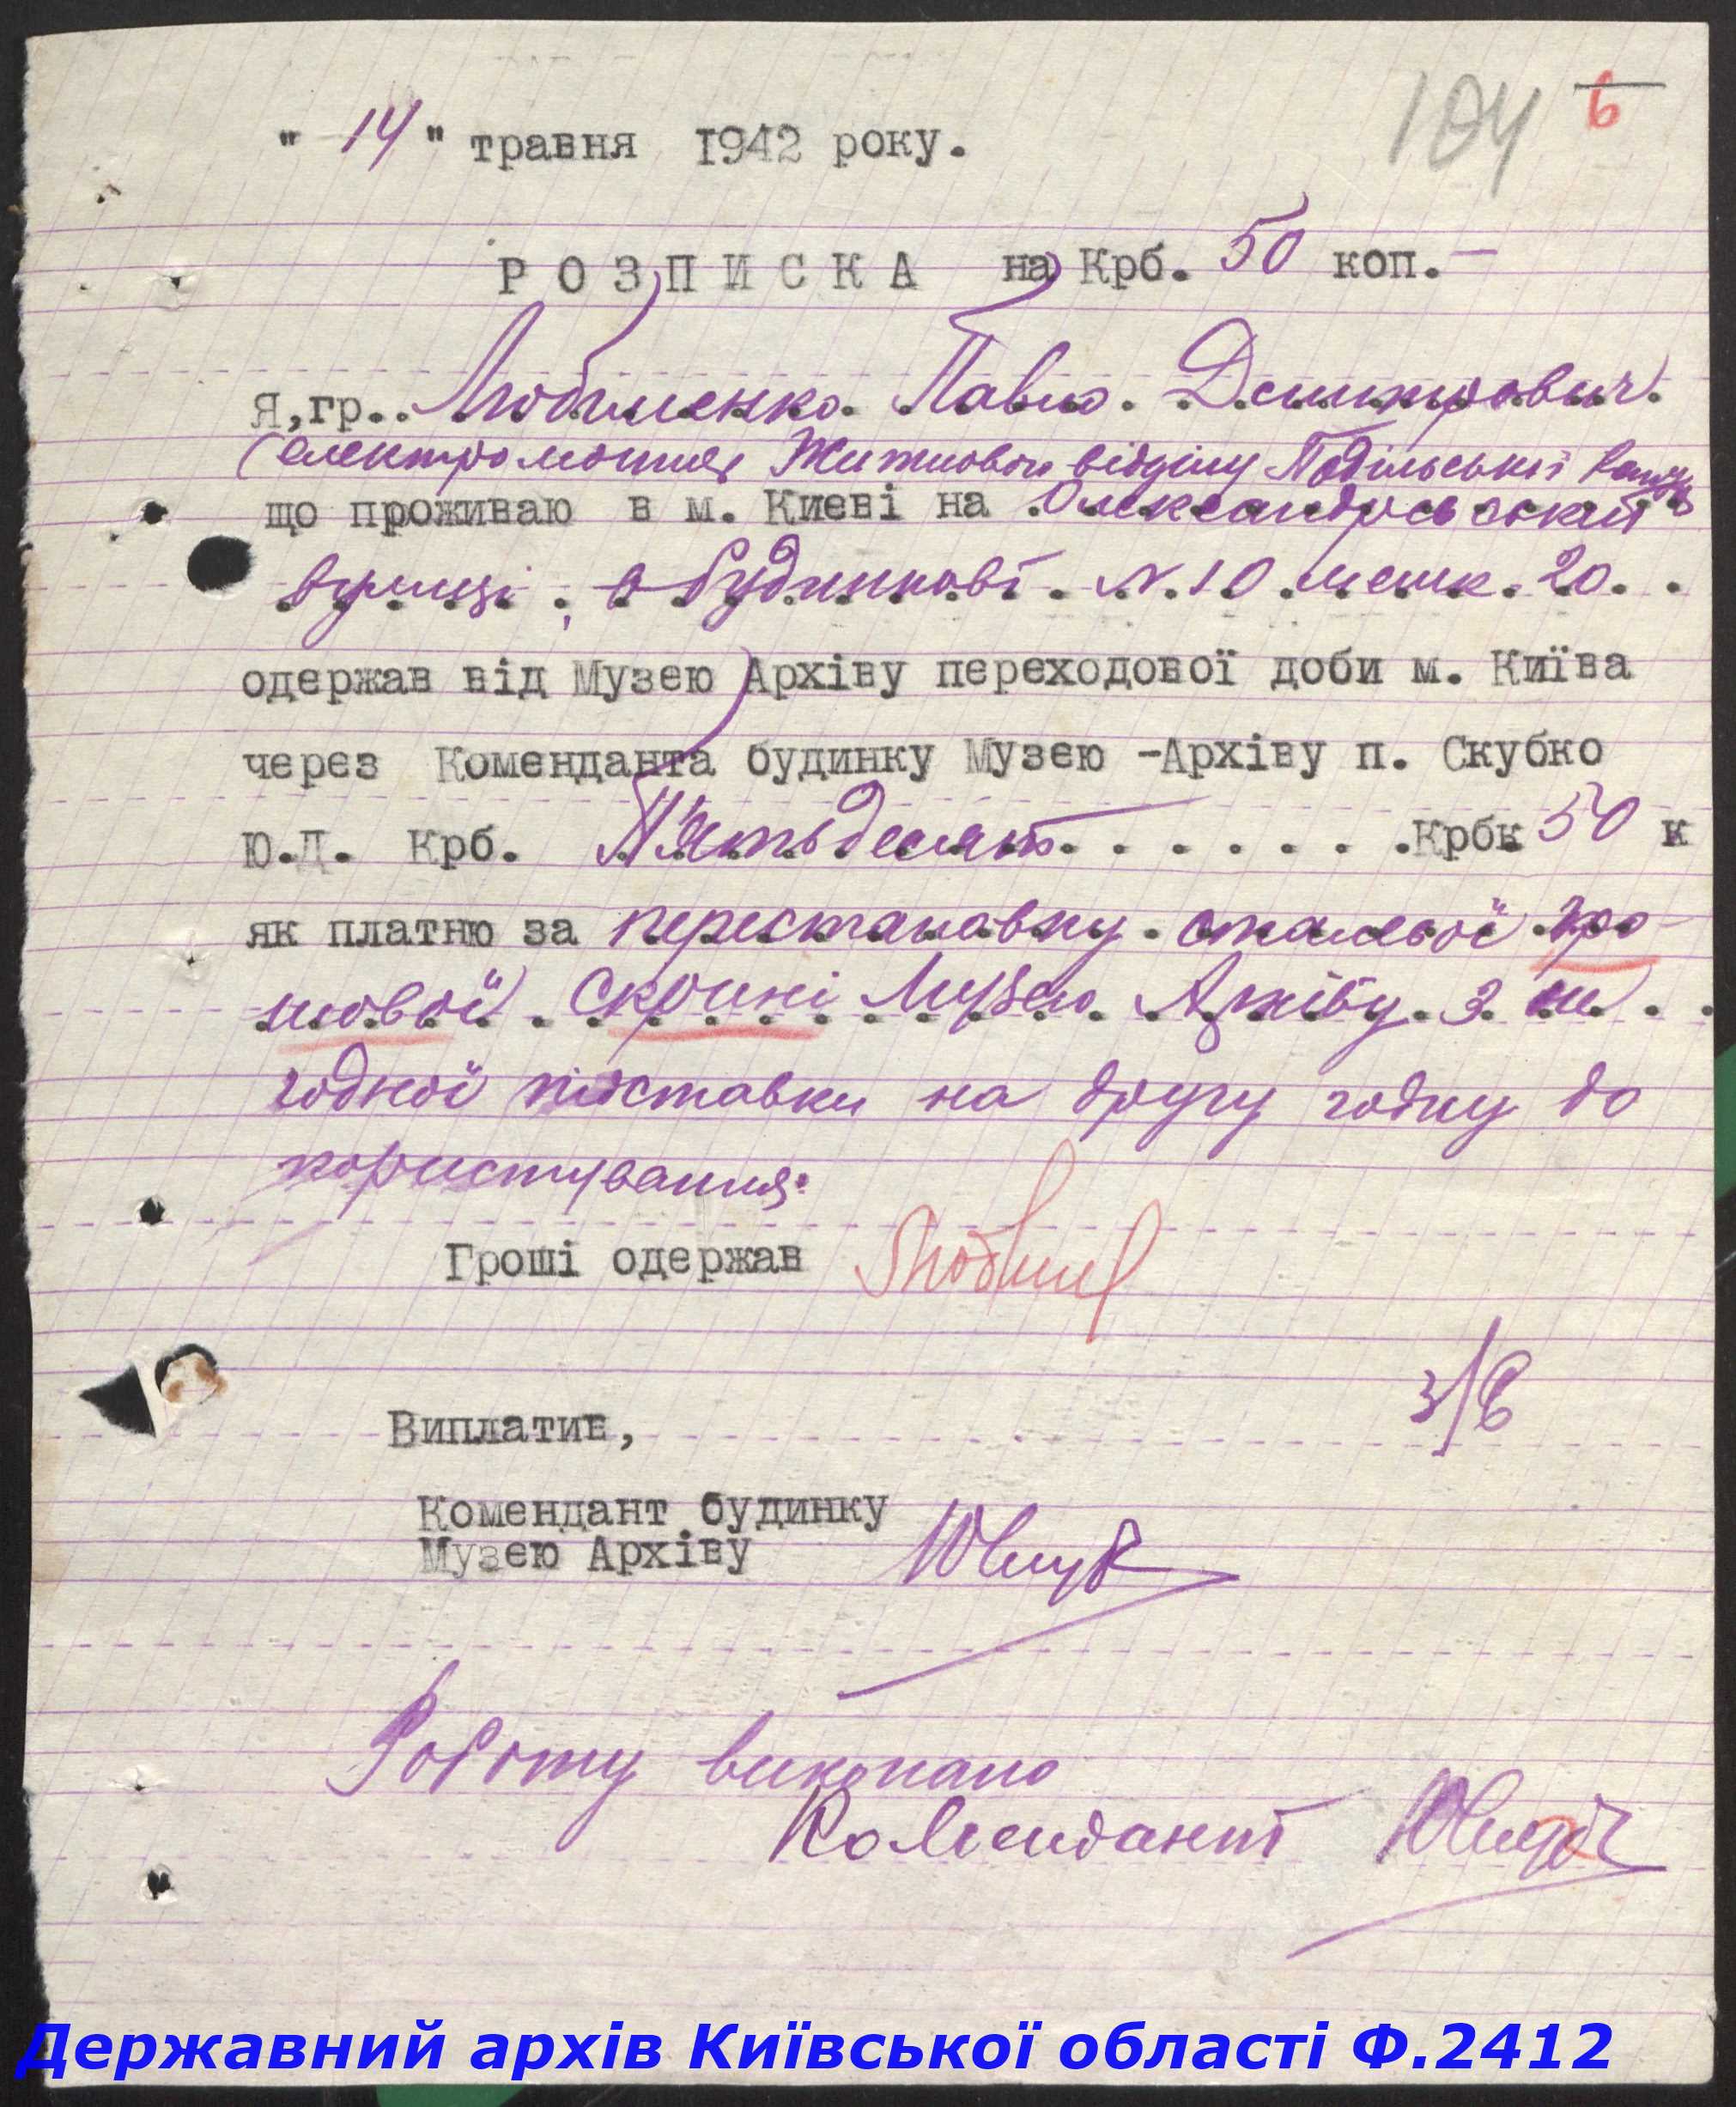 104 6
" 14 " травня 1942 року.
РОЗПИСКА на Крб. 50 коп. —
Я,гр.. Любименко Павло Дмитрович
(електромонтер Житлового відділу Подільської
що проживаю в м. Києві на Олександрівській
вулиці, в будинкові N 10 мешк. 20
одержав від Музею Архіву переходової доби м. Київа
через Коменданта будинку Музею -Архіву п. Скубко
Ю.Д. Крб. П'ятьдесят . . . . . . . .Крбк 50 к
як платню за перестановку стальової гро-
шової скрині Музею Архіву з не
годної підставки на другу годну до
користування.
Гроші одержав
Виплатив,
Комендант будинку
Музею Архіву
Роботу виконано
Комендант
Державний архів Київської області Ф.2412